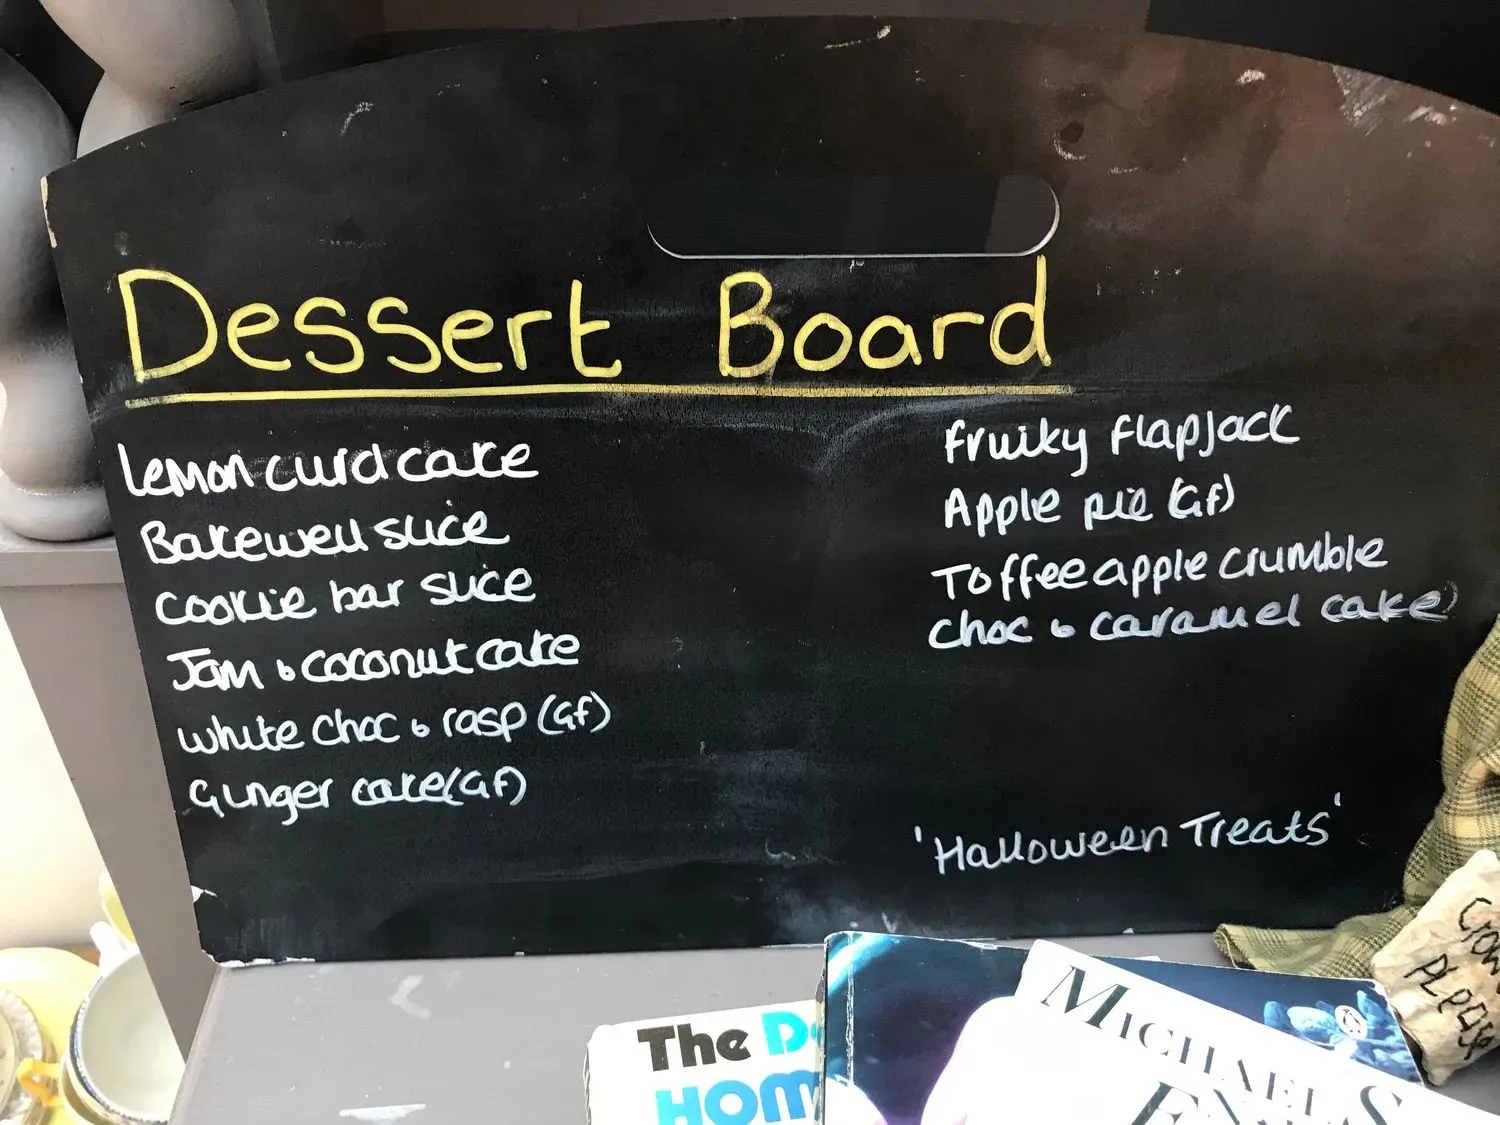 Dessert Board
Lemon curd cake
Bakewell slice
Cookie bar slice
Jam & coconut cake
White choc & rasp (GF)
Ginger cake (GF)
Fruity Flapjack
Apple pie (GF)
Toffee apple crumble
Choc & caramel cake
'Halloween Treats'
The
MICHAEL